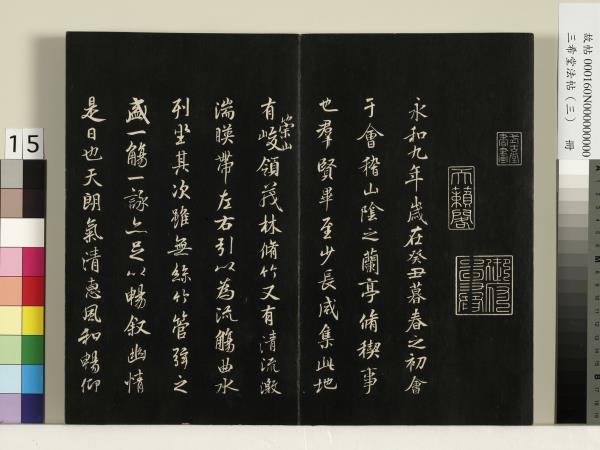 永和九年歲在癸丑暮春之初會
于會稽山陰之蘭亭脩稧事
也羣賢畢至少長咸集此地
有崇山峻領茂林脩竹又有清流激
湍暎帶左右引以為流觴曲水
列坐其次雖無絲竹管弦之
盛一觴一詠亦足以暢敘幽情
是日也天朗氣清惠風和暢仰
天籟閣
故帖 000160N000000000
三希堂法帖（三） 冊
15